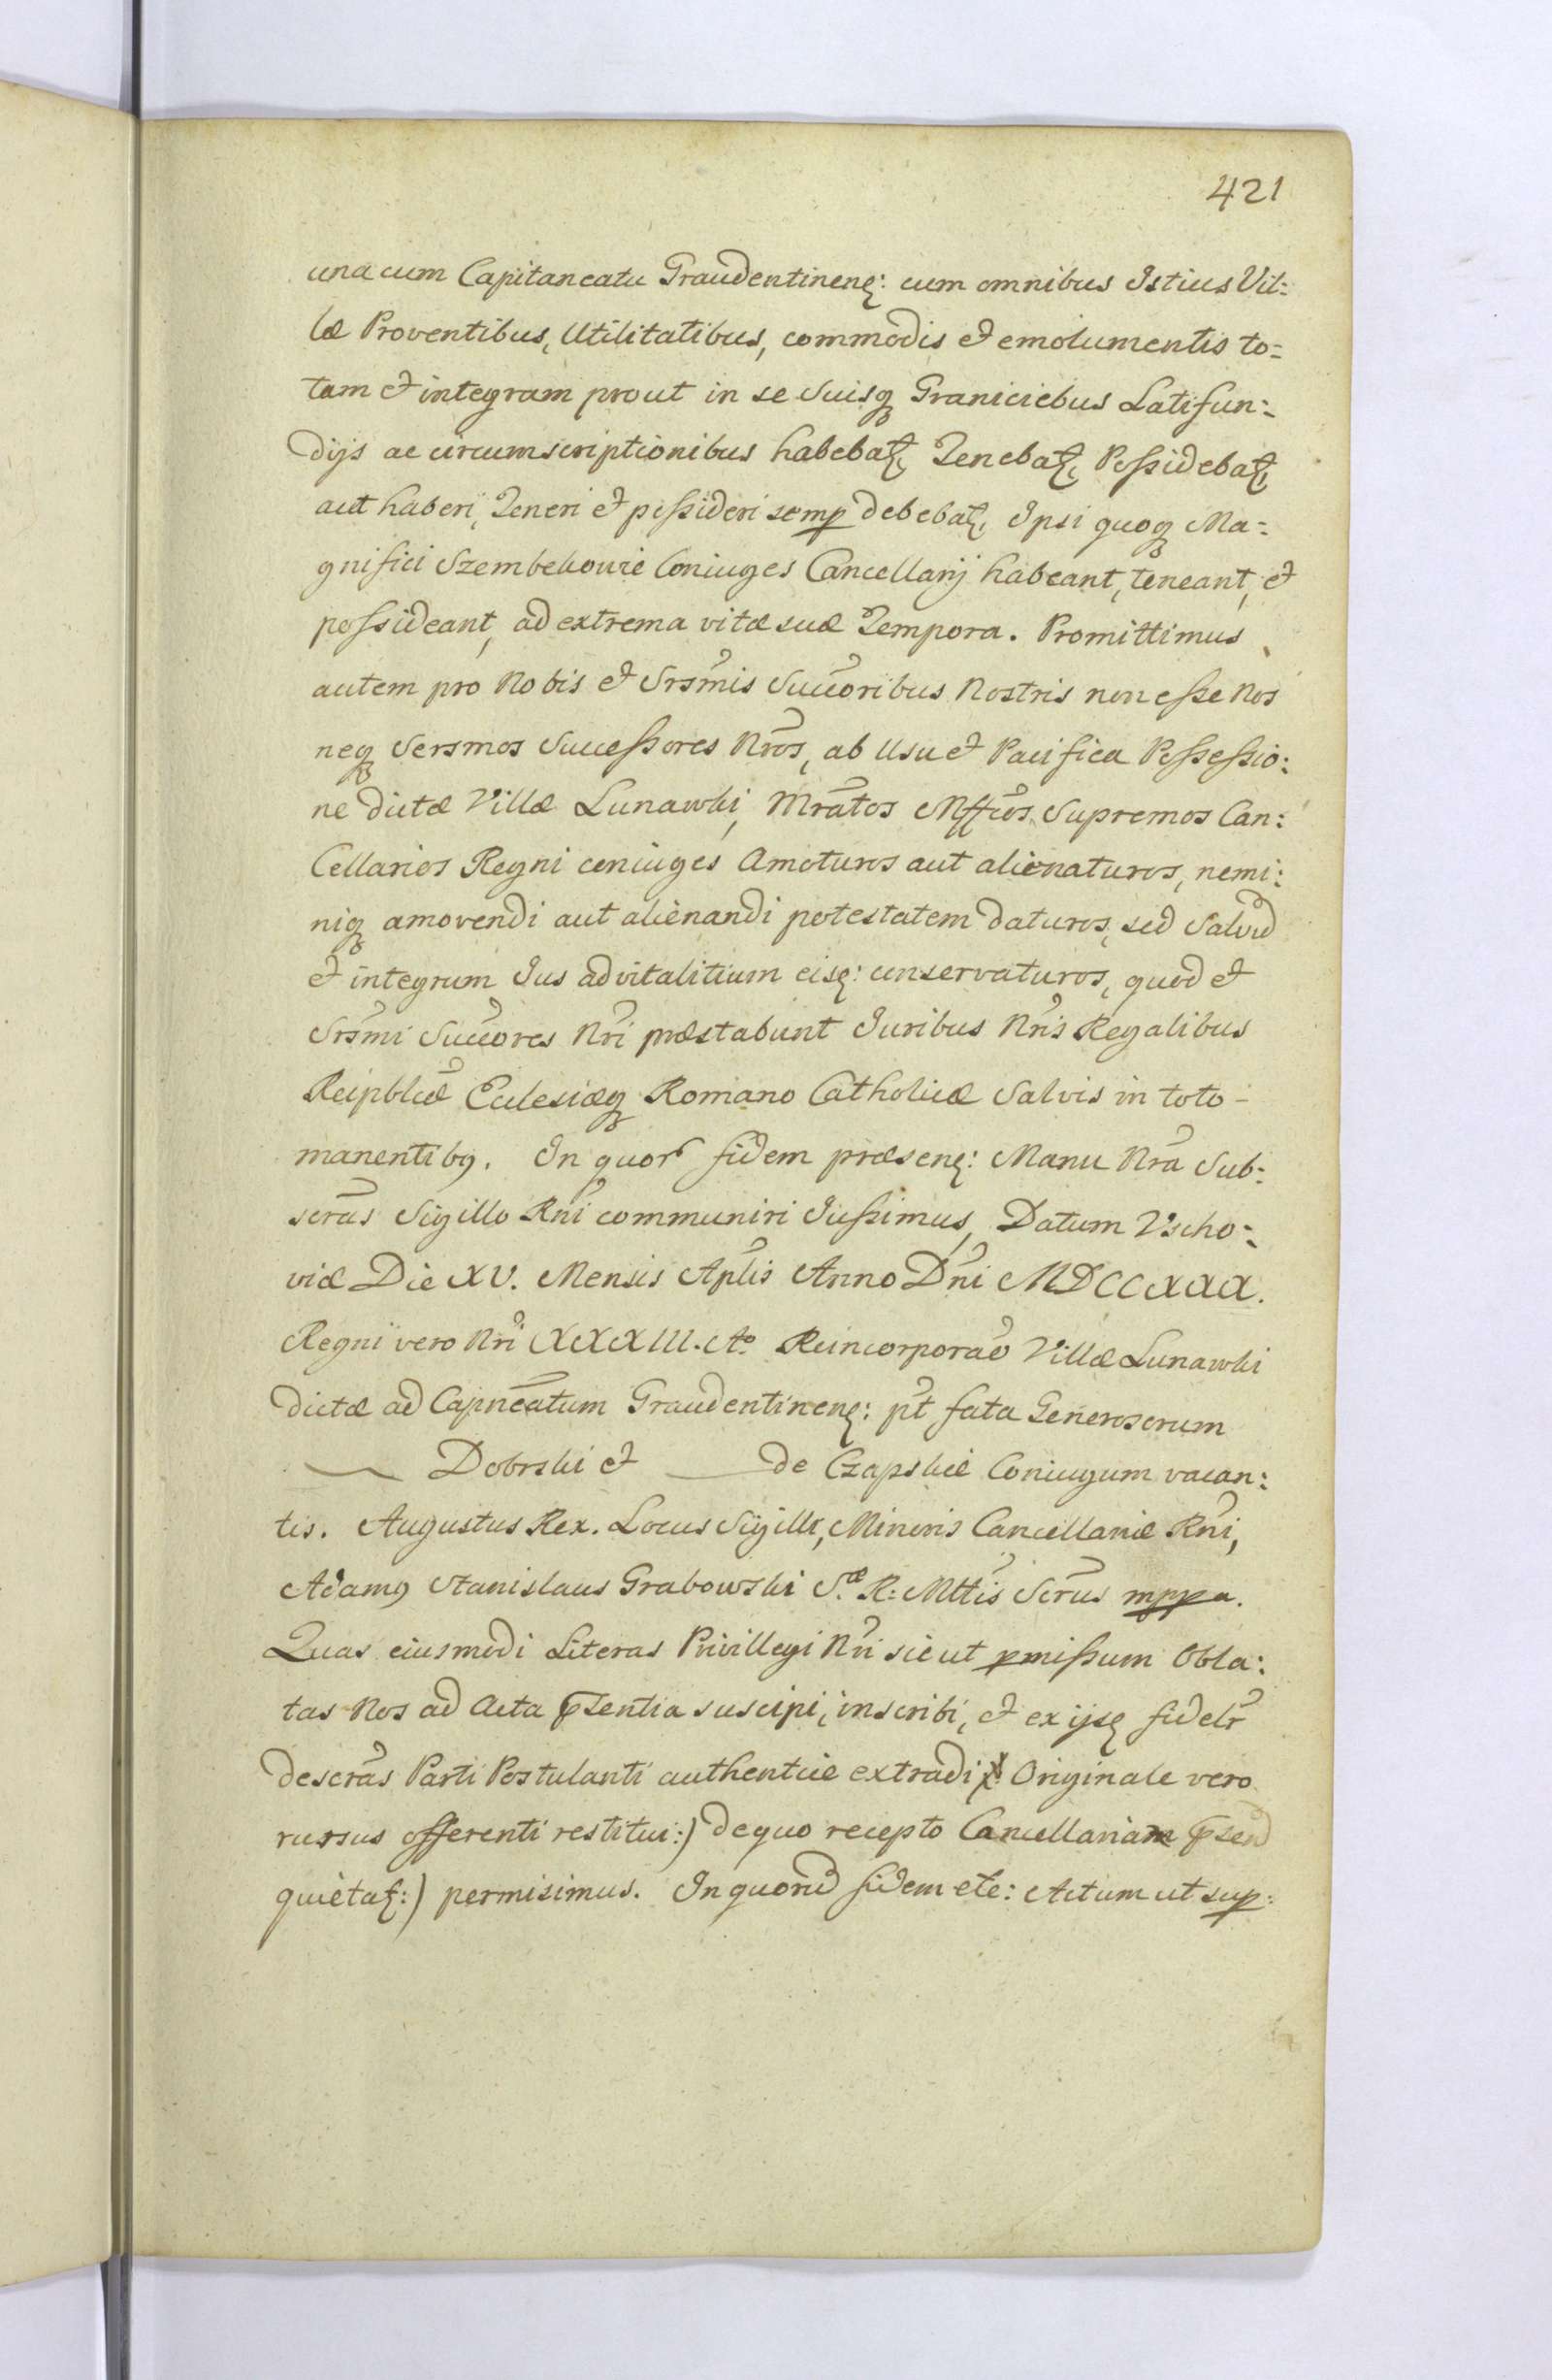 421
una cum Capitaneatu Graudentinens: cum omnibus Istius Vil:
læ Proventibus, Utilitatibus, commodis et emolumentis to=
tam et integram prout in se Suisq Graniciebus Latifun:
dijs ac circumscriptionibus habebat, Tenebat, Possidebat,
aut haberi, Teneri et possideri semp debebat, Ipsi quoq Ma=
gnifici Szembekowie Coniuges Cancellarij habeant, teneant, et
possideant, ad extrema vitæ suæ Tempora. Promittimus
autem pro Nobis et Srsmis Succoribus Nostris non esse Nos
neq Sersmos Successores Nros, ab Usu et Pacifica Possessio:
ne dictæ Villæ Lunawki, Mratos Mffcos Supremos Can:
Cellarios Regni coniuges Amoturos aut alienaturos, nemi:
niq amovendi aut alienandi potestatem daturos, sed Salvū
et integrum Jus advitalitium eisq: conservaturos, quod et
Srsmi Succores Nri præstabunt Juribus Nris Regalibus
Reipblcæ Ecclesiæq Romano Catholicæ Salvis in toto -
manentibq. In quor fidem præsens: Manu Nra Sub:
scras Sigillo Rni communiri Jussimus, Datum Vscho=
viæ Die XV. Mensis Aplis Anno Dni MDCCXXX.
Regni vero Nri XXXIII. Ao Reincorporao Villæ Lunawki
dictæ ad Capneatum Graudentinens: pt fata Generosorum
— Dobrski et — de Czapskie Coniugum vacan:
tis. Augustus Rex. Locus Sigilli, Minoris Cancellariæ Rni,
Adamq Stanislaus Grabowski S.æ R: Mttis Scrus mppa.
Quas eiusmodi Literas Privillegi Nri sicut pmissum Obla:
tas Nos ad Acta psentia suscipi, inscribi, et ex ijsq fidelr
descras Parti Postulanti authentice extradi Originale vero
rursus offerenti restitui:) de quo recepto Cancellariam psend
quietat:) permisimus. In quorū fidem etc: Actum ut sup: